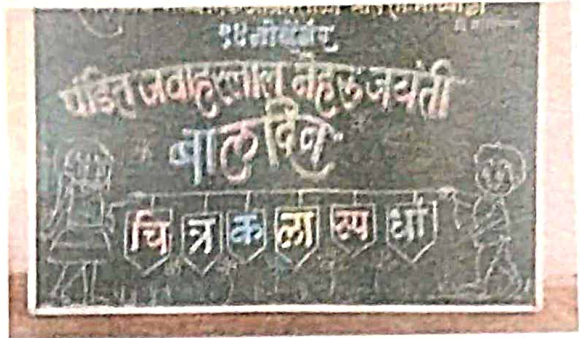 १४ नोव्हेंबर
पंडित जवाहरलाल नेहरू जयंती
बालदिन
चित्रकला स्पर्धा